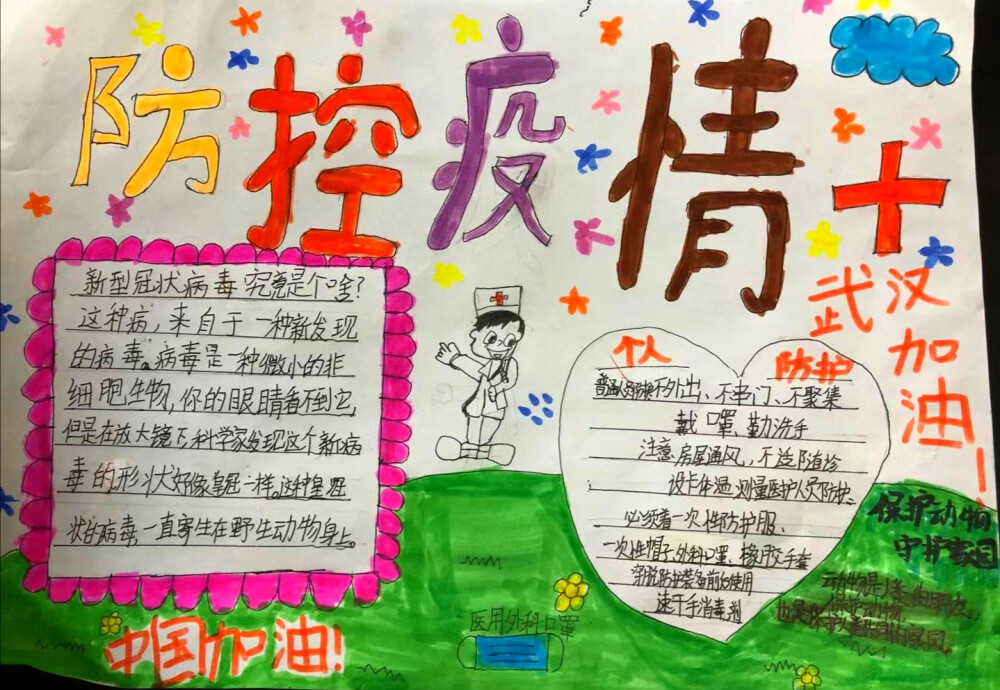 防控疫情
武汉
加油!
新型冠状病毒究竟是个啥?
这种病,来自于一种新发现
的病毒。病毒是一种微小的非
细胞生物,你的眼睛看不到它,
但是在放大镜下,科学家发现这个新病
毒的形状好像皇冠一样。这种皇冠
状的病毒,一直寄生在野生动物身上。
个人防护
不外出、不串门、不聚集
戴口罩、勤洗手
注意房屋通风,不
设卡体温测量医护人员防护:
必须着一次性防护服、
一次性帽子、外科口罩、橡胶手套
穿脱防护装备前后使用
速干手消毒剂
保护动物
守护家园
动物是人类的朋友,
保护动物,
也是保护人类自己的家园。
医用外科口罩
中国加油!